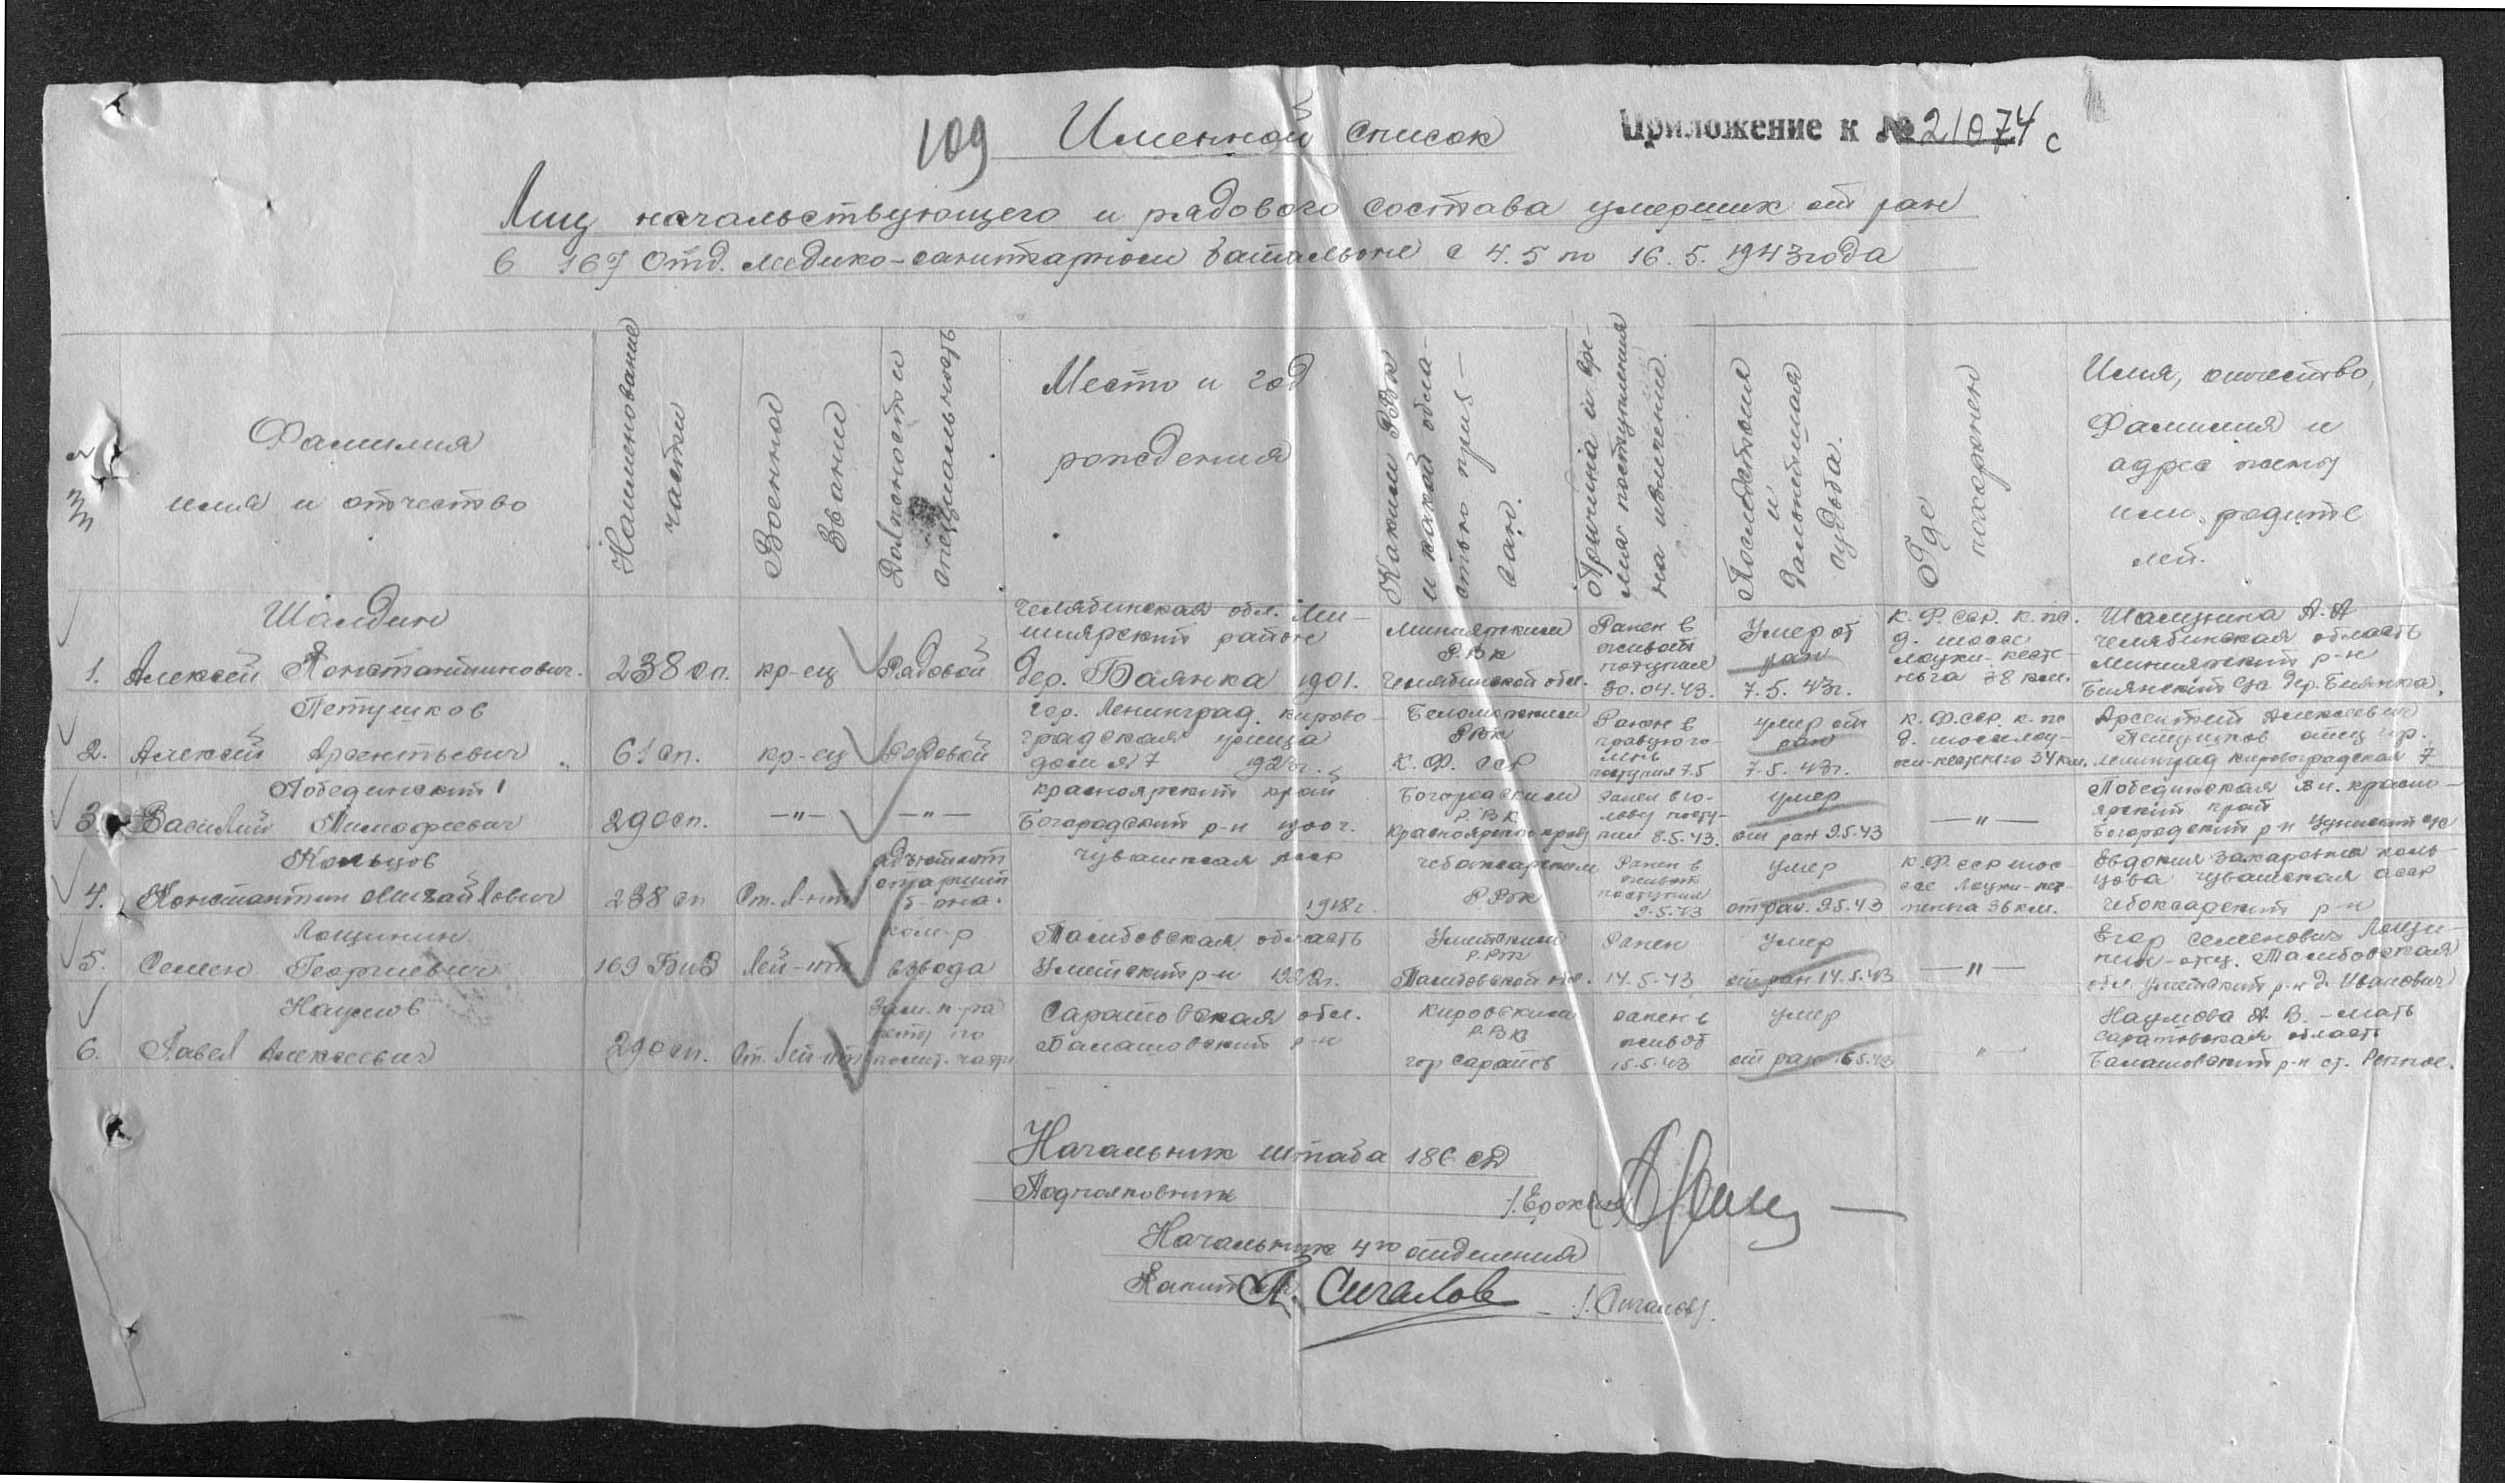 109 Именной список
Приложение к № 21074 с
Лиц начальствующего и рядового состава умерших от ран
в 167 Отд. медико-санитарном батальоне с 4.5 по 16.5.1943 года
Фамилия
имя и отчество
Наименование
части
Военное
звание
Должность и
специальность
Место и год
рождения
Каким РВК
и какой обла-
стью приз-
ван.
Причина и вре-
мя поступления
на излечение.
Последствия
и
дальнейшая
судьба.
Где
похоронен
Имя, отчество,
Фамилия и
адрес жены
или родите
лей.
Шалдин
1. Алексей Константинович.
238 сп.
кр-ец
Рядовой
Челябинская обл. Ми-
ниярский район
дер. Баянка 1901.
Миниярским
РВК
Челябинской обл.
Ранен в
живот
поступил
30.04.43.
Умер от
ран
7.5.43г.
К.Ф.сср. к.пс.
д. шоссе
Лоухи-Кесте-
ньга 38 км.
А.А
Челябинская область
Миниярский р-н
Петушков
2. Алексей Арсентьевич
61 сп.
кр-ец
Рядовой
гор. Ленинград, Кирово-
градская улица
дом № 7
Беломорским
РВК
К.Ф. ССР
Ранен в
поступил 7.5
умер от
ран
7.5.43г.
К.Ф.сср. к.пс
34 км.
Арсентий Алексеевич
Петушков отец гор.
Ленинград Кировоградская 7
Побединский
3. Василий Тимофеевич
290 сп.
—"—
—"—
Красноярский край
Богородский р-н 1900г.
Богородским
Р.В.К
Красноярского края
Ранен в го-
лову посту-
пил 8.5.43.
умер
от ран 9.5.43
—"—
Побединская
ярский край
Кольцов
4. Константин Михайлович
238 сп
Ст. Л-нт
адъютант
старший
б-она.
Чувашская асср
1918г.
Чебоксарским
РВК
Ранен в
живот
поступил
9.5.43
умер
от ран. 9.5.43
К.Ф сср шос-
се Лоухи-Кес-
теньга 36 км.
Евдокия Захаровна Коль-
цова Чувашская асср
Чебоксарский р-н
Лощинин
5. Семен Георгиевич
169
Лей-нт
ком-р
взвода
Тамбовская область
Уметский р-н
Уметским
РВК
Тамбовской обл.
Ранен
14.5.43
умер
от ран 14.5.43
—"—
Егор Семенович Лощи-
нин-отец. Тамбовская
обл. Уметский р-н
Наумов
6. Павел Алексеевич
290 сп.
Ст. Лей-нт
полит. части
Саратовская обл.
Балашовский р-н
Кировским
Р.В.К
гор Саратов
ранен в
живот
15.5.43
умер
от ран 16.5.43
"
Наумова А. В. - мать
Саратовская область
Балашовский р-н
Начальник штаба 186 сд
Подполковник
/.Ерохин/
Начальник 4го отделения
Капитан
А. Сигалов
/.Сигалов/.